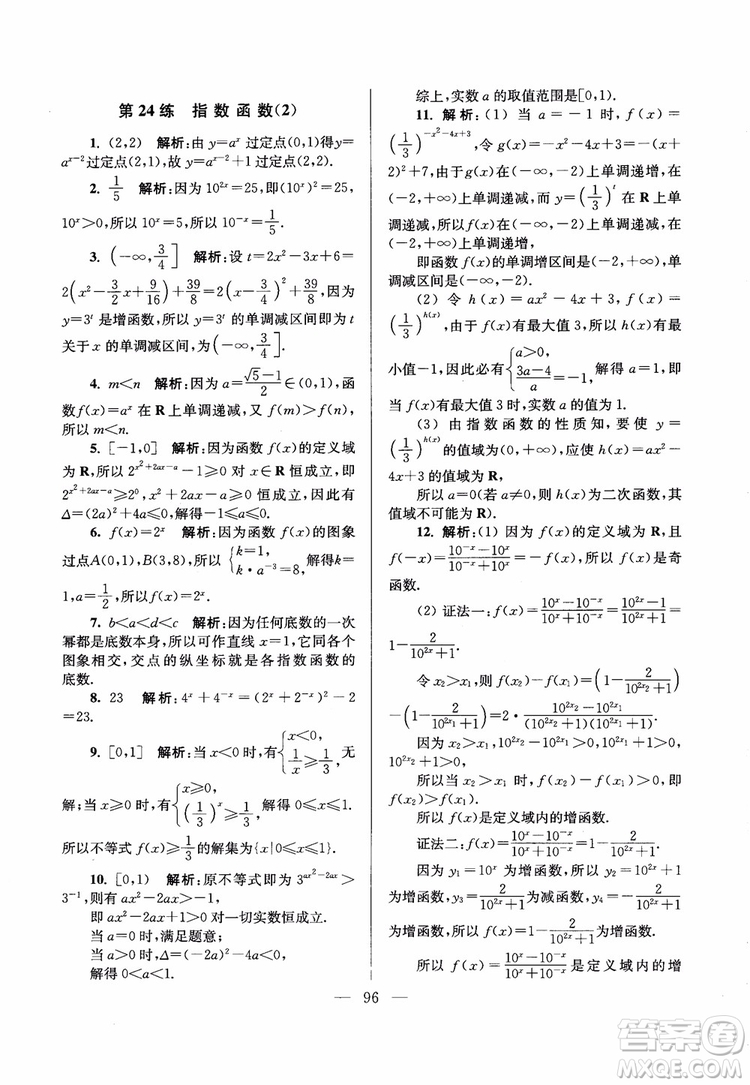 第 24 练　指 数 函 数(2)
1. (2,2)　解析:由 y=aˣ 过定点(0,1)得y=
aˣ⁻² 过定点(2,1),故 y=aˣ⁻²+1 过定点(2,2).
2. 1/5　解析:因为 10²ˣ=25,即(10ˣ)²=25,
10ˣ>0,所以 10ˣ=5,所以 10⁻ˣ=1/5.
3. (-∞,3/4]　解析:设 t=2x²-3x+6=
2(x²-3/2x+9/16)+39/8=2(x-3/4)²+39/8,因为
y=3ᵗ 是增函数,所以 y 的单调减区间即为 t
关于 x 的单调减区间,为(-∞,3/4].
4. m<n　解析:因为 a=(√5-1)/2∈(0,1),函
数 f(x)=aˣ 在 R 上单调递减,又 f(m)>f(n),
所以 m<n.
5. [-1,0]　解析:因为函数 f(x)的定义域
为 R,所以 2^(x²+2ax-a)-1≥0 对 x∈R 恒成立,即
2^(x²+2ax-a)≥2⁰,x²+2ax-a≥0 恒成立,因此有
Δ=(2a)²+4a≤0,解得-1≤a≤0.
6. f(x)=2ˣ　解析:因为函数 f(x)的图象
过点A(0,1),B(3,8),所以{k=1, k·a⁻³=8,解得k=
1,a=1/2,所以 f(x)=2ˣ.
7. b<a<d<c　解析:因为任何底数的一次
幂都是底数本身,所以可作直线 x=1,它与各个
图象相交,交点的纵坐标就是各指数函数的
底数.
8. 23　解析:4ˣ+4⁻ˣ=(2ˣ+2⁻ˣ)²-2
=23.
9. [0,1]　解析:当 x<0 时,有{x<0, 1/x≥1/3,无
解;当 x≥0 时,有{x≥0, (1/3)ˣ≥1/3,解得 0≤x≤1.
所以不等式 f(x)≥1/3的解集为{x|0≤x≤1}.
10. [0,1)　解析:原不等式即为 3^(ax²-2ax)>
3⁻¹,则有 ax²-2ax>-1,
即 ax²-2ax+1>0 对一切实数恒成立.
当 a=0 时,满足题意;
当 a≠0 时,Δ=(-2a)²-4a<0,
解得 0<a<1.
综上,实数 a 的取值范围是[0,1).
11. 解析:(1) 当 a=-1 时,f(x)=
(1/3)^(-x²-4x+3),令 g(x)=-x²-4x+3=-(x+
2)²+7,由于 g(x)在(-∞,-2)上单调递增,在
(-2,+∞)上单调递减,而 y=(1/3)ᵗ 在 R 上单
调递减,所以 f(x)在(-∞,-2)上单调递减,在
(-2,+∞)上单调递增,
即函数 f(x)的单调增区间是(-2,+∞),单
调减区间是(-∞,-2).
(2) 令 h(x)=ax²-4x+3,f(x)=
(1/3)^h(x),由于 f(x)有最大值 3,所以 h(x)有最
小值-1,因此必有{a>0, (3a-4)/a=-1,解得 a=1,即
当 f(x)有最大值 3 时,实数 a 的值为 1.
(3) 由指数函数的性质知,要使 y=
(1/3)^h(x)的值域为(0,+∞),应使 h(x)=ax²-
4x+3 的值域为 R,
所以 a=0(若 a≠0,则 h(x)为二次函数,其
值域不可能为 R).
12. 解析:(1) 因为 f(x)的定义域为 R,且
f(-x)=(10⁻ˣ-10ˣ)/(10⁻ˣ+10ˣ)=-f(x),所以 f(x)是奇
函数.
(2) 证法一:f(x)=(10ˣ-10⁻ˣ)/(10ˣ+10⁻ˣ)=(10²ˣ-1)/(10²ˣ+1)=
1-2/(10²ˣ+1).
令 x₂>x₁,则 f(x₂)-f(x₁)=(1-2/(10^(2x₂)+1))
-(1-2/(10^(2x₁)+1))=2·(10^(2x₂)-10^(2x₁))/((10^(2x₂)+1)(10^(2x₁)+1)).
因为 x₂>x₁,所以 10^(2x₂)-10^(2x₁)>0,又 10^(2x₁)+1>0,
10^(2x₂)+1>0,
所以当 x₂>x₁ 时,f(x₂)-f(x₁)>0,f(x₂)>f(x₁).
所以 f(x)是定义域内的增函数.
证法二:f(x)=(10ˣ-10⁻ˣ)/(10ˣ+10⁻ˣ)=1-2/(10²ˣ+1).
因为 y₁=10ˣ 为增函数,所以 y₂=10²ˣ+1
为增函数,y₃=2/(10²ˣ+1)为减函数,y₄=-2/(10²ˣ+1)
为增函数,所以 f(x)=1-2/(10²ˣ+1)为增函数.
所以 f(x)=(10ˣ-10⁻ˣ)/(10ˣ+10⁻ˣ)是定义域内的增
— 96 —
答案圈
MXQE.COM